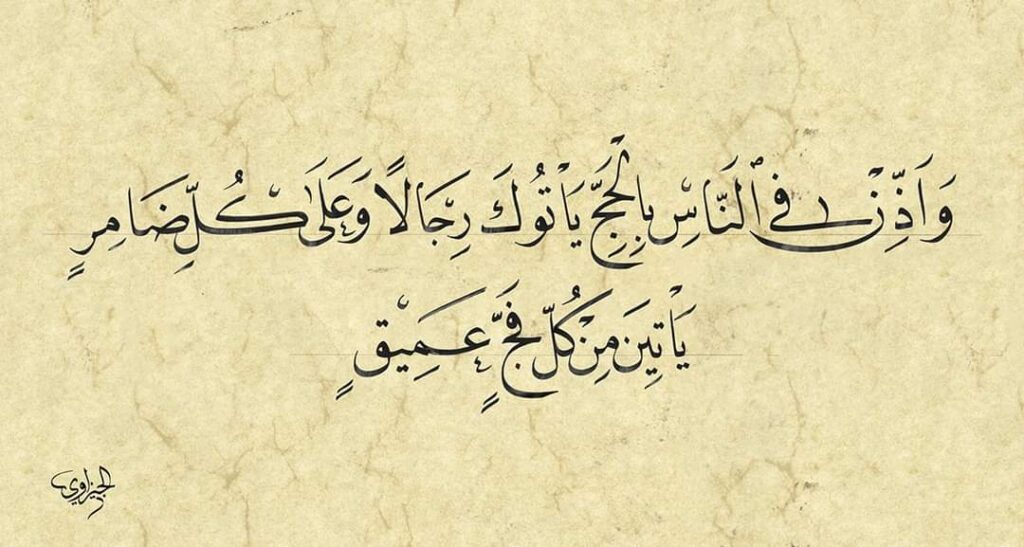 وَأَذِّنْ فِي ٱلنَّاسِ بِالْحَجِّ يَأْتُوكَ رِجَالًا وَعَلَىٰ كُلِّ ضَامِرٍ
يَأْتِينَ مِنْ كُلِّ فَجٍّ عَمِيقٍ